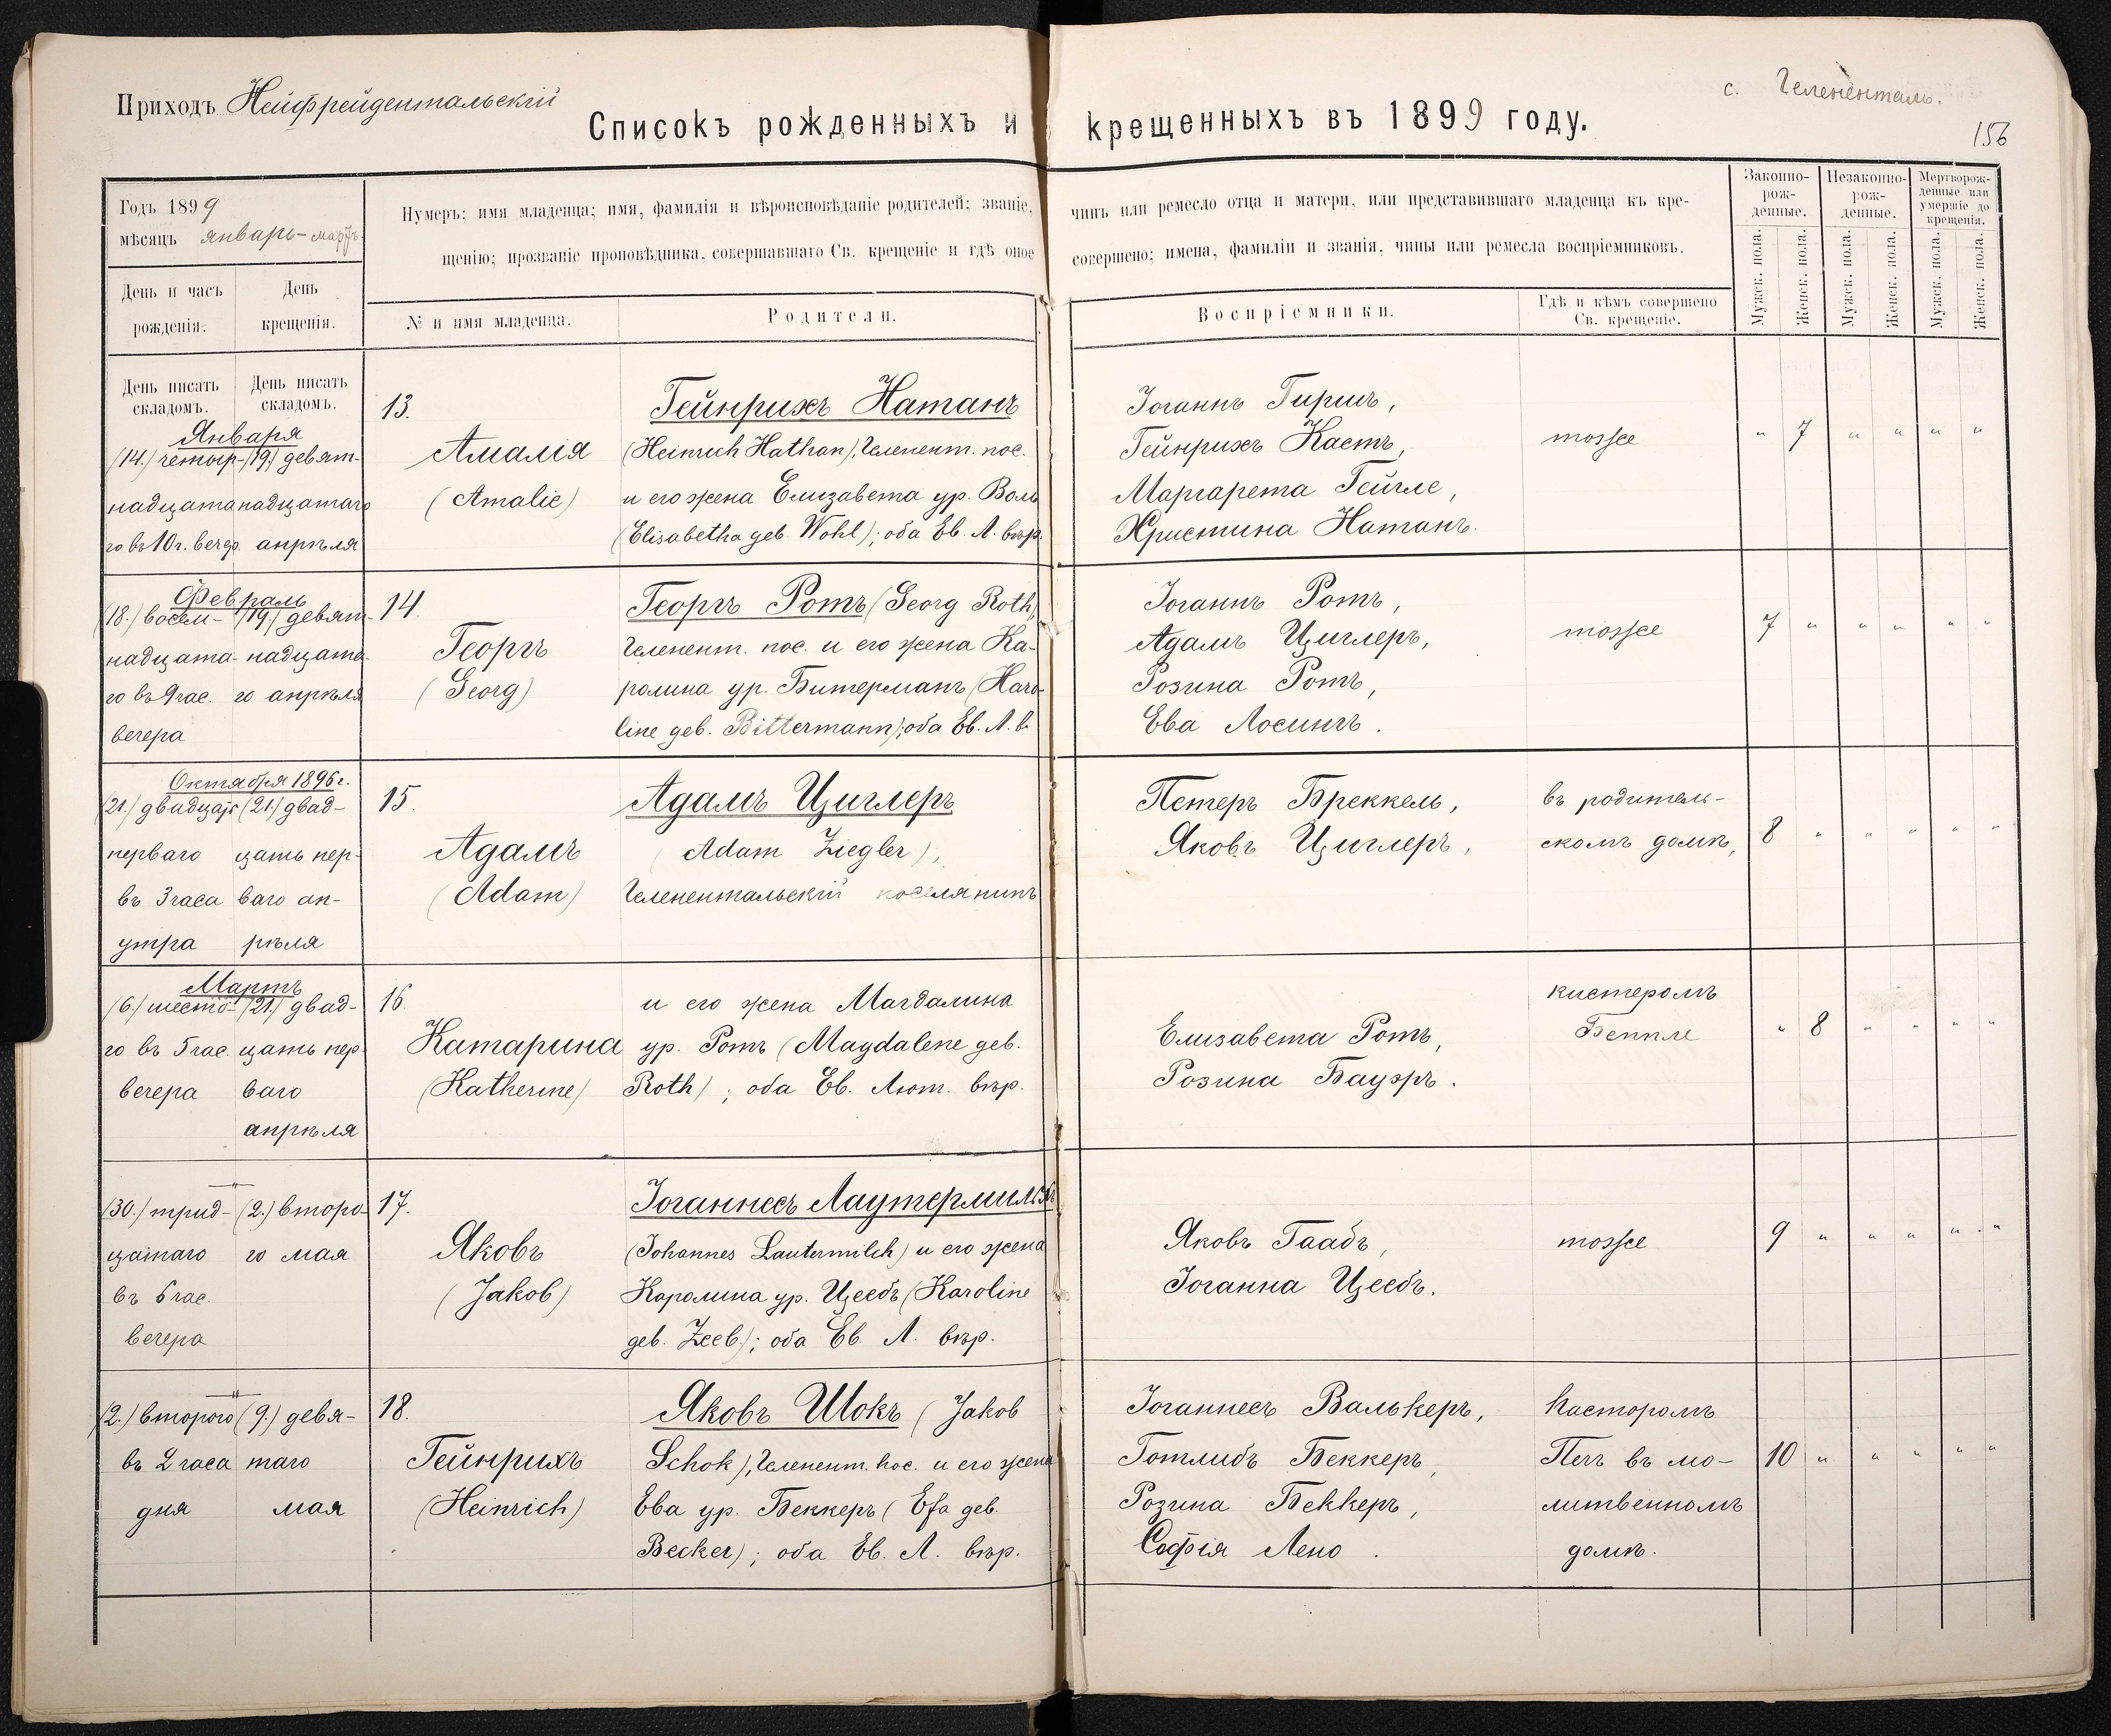 Приходъ Нейфрейдентальскій
с. Гелененталь.
Списокъ рожденныхъ и крещенныхъ въ 1899 году.
156
Годъ 1899
мѣсяцъ январь-мартъ.
День и часъ рожденія.
День крещенія.
Нумеръ; имя младенца; имя, фамилія и вѣроисповѣданіе родителей; званіе, чинъ или ремесло отца и матери, или представившаго младенца къ кре-
щенію; прозваніе проповѣдника, совершавшаго Св. крещеніе и гдѣ оное совершено; имена, фамиліи и званія, чины или ремесла воспріемниковъ.
№ и имя младенца.
Родители.
Воспріемники.
Гдѣ и кѣмъ совершено
Св. крещеніе.
Законно-
рож-
денные.
Незаконно-
рож-
денные.
Мертворож-
денные или
умершіе до
крещенія.
Мужск. пола.
Женск. пола.
Мужск. пола.
Женск. пола.
Мужск. пола.
Женск. пола.
День писать
складомъ.
День писать
складомъ.
Января
(14.) четыр-
надцата
го въ 10 ч. вечер.
(19.) девят-
надцатаго
апрѣля
13.
Амалія
(Amalie)
Гейнрихъ Натанъ
(Heinrich Nathan), Геленент. пос.
и его жена Елизавета ур. Воль
(Elisabetha geb. Wohl); оба Ев. Л. вѣр.
Іоганнъ Гиршъ,
Гейнрихъ Кастъ,
Маргарета Гейгле,
Христина Натанъ.
тоже
" 7 " " " "
Февраль
(18.) восем-
надцата-
го въ 9 час.
вечера
(19.) девят-
надцата-
го апрѣля
14.
Георгъ
(Georg)
Георгъ Ротъ (Georg Roth),
Геленент. пос. и его жена Ка-
ролина ур. Битерманъ (Karo-
line geb. Bittermann); оба Ев. Л. в.
Іоганнъ Ротъ,
Адамъ Циглеръ,
Розина Ротъ,
Ева Лосингъ.
тоже
7 " " " " "
Октября 1896 г.
(21.) двадцать
перваго
въ 3 часа
утра
(21.) двад-
цать пер-
ваго ап-
рѣля
15.
Адамъ
(Adam)
Адамъ Циглеръ
(Adam Ziegler),
Гелентальскій поселянинъ
Петеръ Бреккель,
Яковъ Циглеръ,
въ родитель-
скомъ домѣ,
8 " " " " "
Мартъ
(6.) шесто-
го въ 5 час.
вечера
(21.) двад-
цать пер-
ваго
апрѣля
16.
Катарина
(Katherine)
и его жена Магдалина
ур. Ротъ (Magdalene geb.
Roth); оба Ев. Лют. вѣр.
Елизавета Ротъ,
Розина Бауэръ.
кистеромъ
Беппле
" 8 " " " "
"
(30.) трид-
цатаго
въ 6 час.
вечера
(2.) второ-
го мая
17.
Яковъ
(Jakob)
Іоганнесъ Лаутермильхъ
(Johannes Lautermilch) и его жена
Каролина ур. Цеебъ (Karoline
geb. Zeeb.); оба Ев. Л. вѣр.
Яковъ Гаабъ,
Іоганна Цеебъ.
тоже
9 " " " " "
"
(2.) второго
въ 2 часа
дня
(9.) девя-
таго
мая
18.
Гейнрихъ
(Heinrich)
Яковъ Шокъ (Jakob
Schok), Геленент. пос. и его жена
Ева ур. Беккеръ (Efa geb.
Becker); оба Ев. Л. вѣр.
Іоганнесъ Валькеръ,
Готлибъ Беккеръ,
Розина Беккеръ,
Софія Лено.
Пасторомъ
Печъ въ мо-
литвенномъ
домѣ.
10 " " " " "